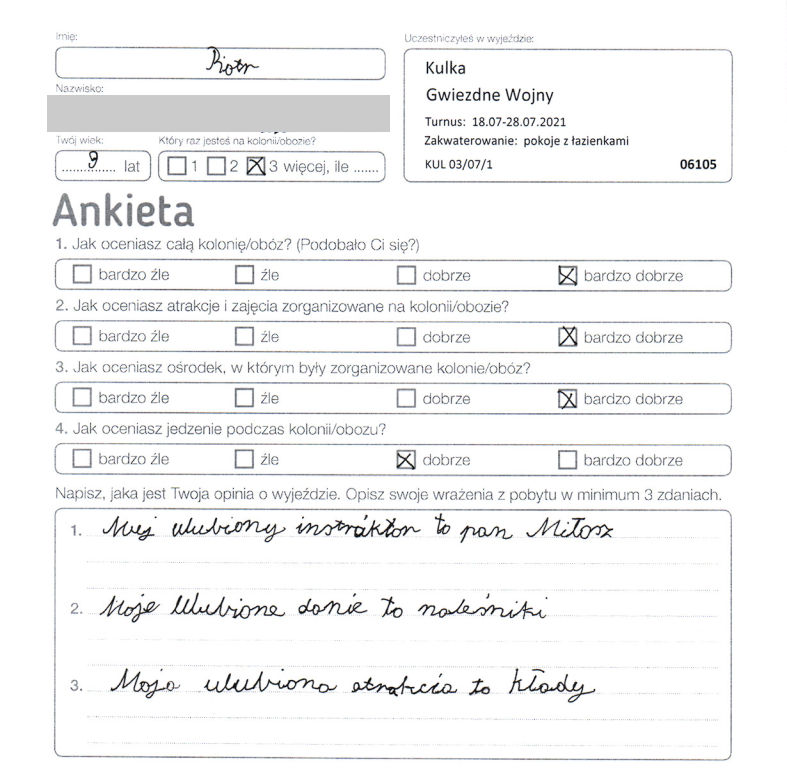 Imię:
Piotr
Nazwisko:
Twój wiek:
9 lat
Który raz jesteś na kolonii/obozie?
1 2 3 więcej, ile .......
Uczestniczyłeś w wyjeździe:
Kulka
Gwiezdne Wojny
Turnus: 18.07-28.07.2021
Zakwaterowanie: pokoje z łazienkami
KUL 03/07/1 06105
Ankieta
1. Jak oceniasz całą kolonię/obóz? (Podobało Ci się?)
bardzo źle źle dobrze bardzo dobrze
2. Jak oceniasz atrakcje i zajęcia zorganizowane na kolonii/obozie?
bardzo źle źle dobrze bardzo dobrze
3. Jak oceniasz ośrodek, w którym były zorganizowane kolonie/obóz?
bardzo źle źle dobrze bardzo dobrze
4. Jak oceniasz jedzenie podczas kolonii/obozu?
bardzo źle źle dobrze bardzo dobrze
Napisz, jaka jest Twoja opinia o wyjeździe. Opisz swoje wrażenia z pobytu w minimum 3 zdaniach.
1. Muj ulubiony instrAktor to pan Miłosz
2. Moje Ulubione danie to naleśniki
3. Moja ulubiona atrakcia to kłady